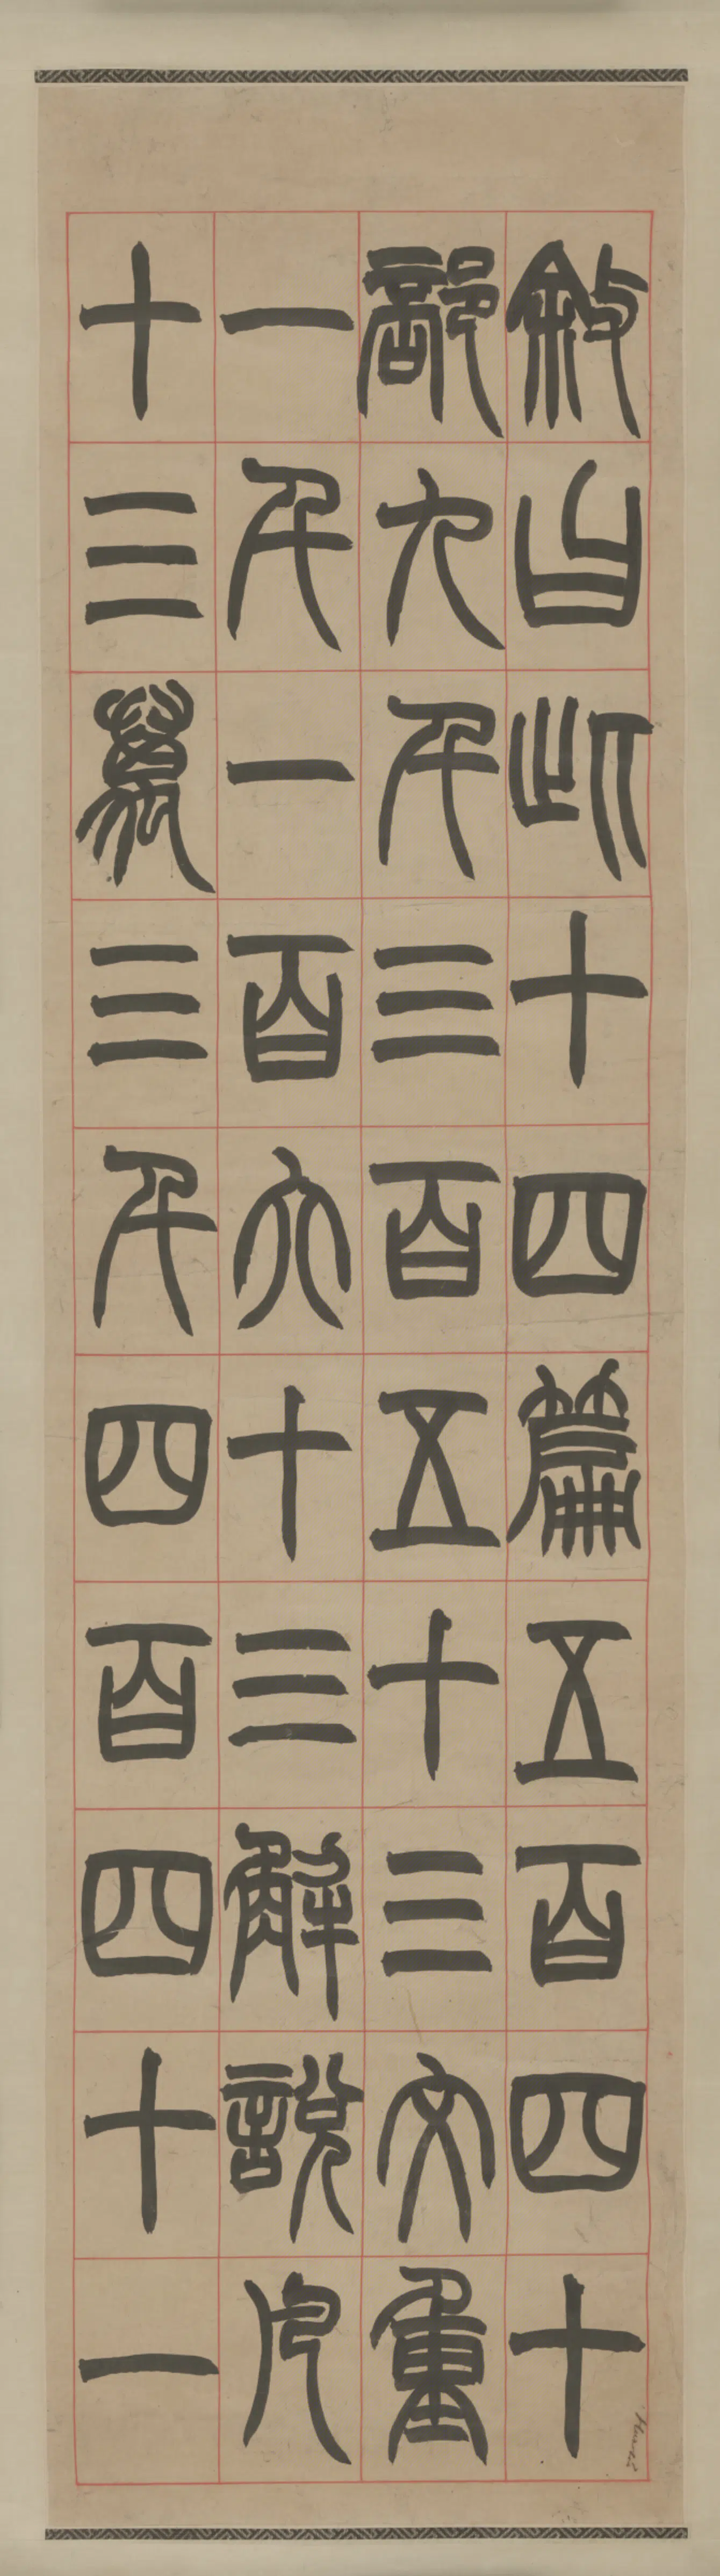 敘曰此十四篇五百四十
部九千三百五十三文重
一千一百六十三解說凡
十三萬三千四百四十一